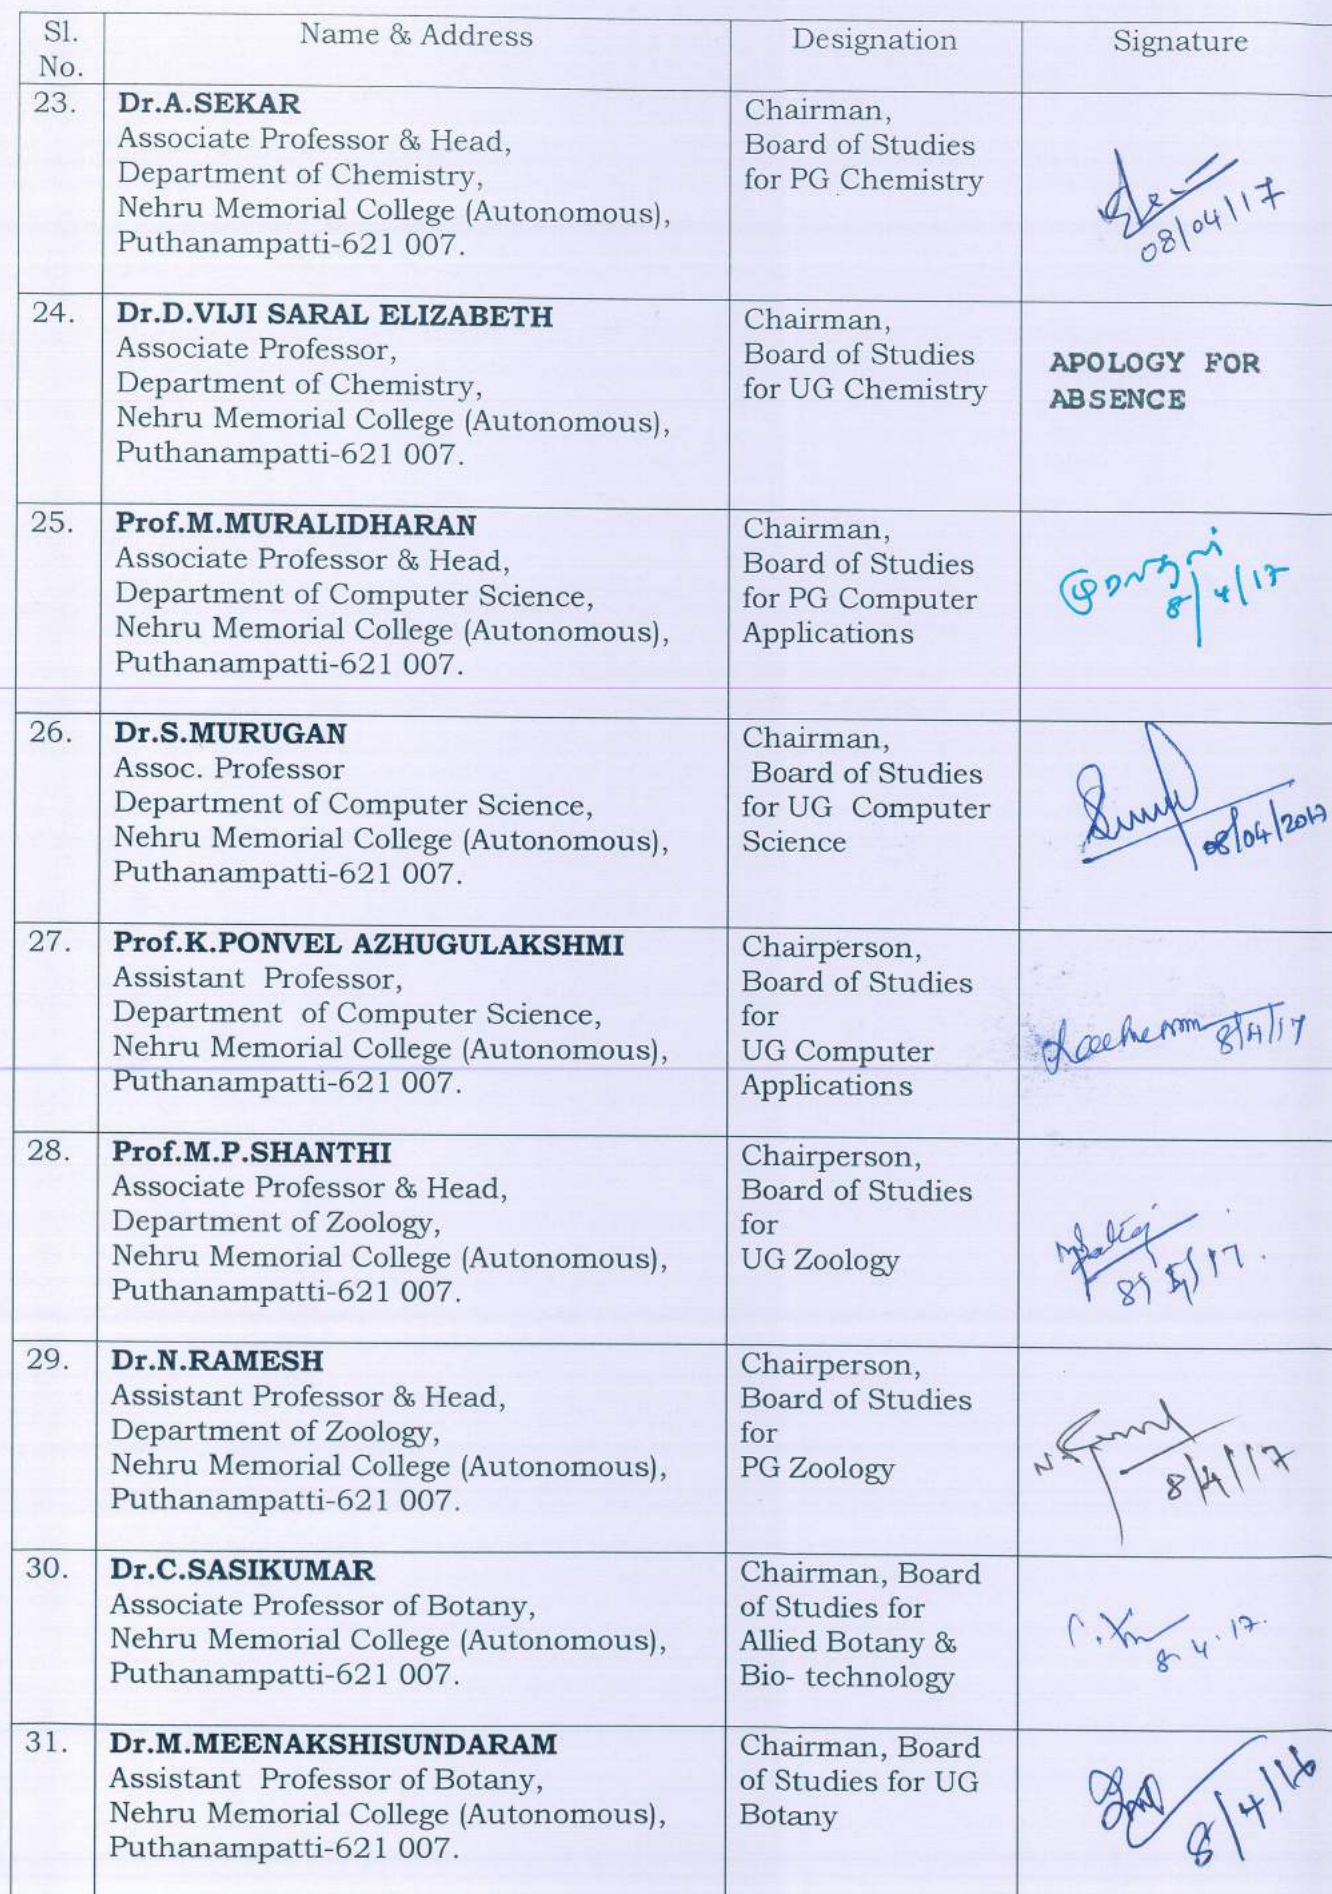 Sl.
No.
Name & Address
Designation
Signature
23.
Dr.A.SEKAR
Associate Professor & Head,
Department of Chemistry,
Nehru Memorial College (Autonomous),
Puthanampatti-621 007.
Chairman,
Board of Studies
for PG Chemistry
08/04/17
24.
Dr.D.VIJI SARAL ELIZABETH
Associate Professor,
Department of Chemistry,
Nehru Memorial College (Autonomous),
Puthanampatti-621 007.
Chairman,
Board of Studies
for UG Chemistry
APOLOGY FOR
ABSENCE
25.
Prof.M.MURALIDHARAN
Associate Professor & Head,
Department of Computer Science,
Nehru Memorial College (Autonomous),
Puthanampatti-621 007.
Chairman,
Board of Studies
for PG Computer
Applications
8/4/17
26.
Dr.S.MURUGAN
Assoc. Professor
Department of Computer Science,
Nehru Memorial College (Autonomous),
Puthanampatti-621 007.
Chairman,
Board of Studies
for UG Computer
Science
08/04/2017
27.
Prof.K.PONVEL AZHUGULAKSHMI
Assistant Professor,
Department of Computer Science,
Nehru Memorial College (Autonomous),
Puthanampatti-621 007.
Chairperson,
Board of Studies
for
UG Computer
Applications
8/4/17
28.
Prof.M.P.SHANTHI
Associate Professor & Head,
Department of Zoology,
Nehru Memorial College (Autonomous),
Puthanampatti-621 007.
Chairperson,
Board of Studies
for
UG Zoology
29.
Dr.N.RAMESH
Assistant Professor & Head,
Department of Zoology,
Nehru Memorial College (Autonomous),
Puthanampatti-621 007.
Chairperson,
Board of Studies
for
PG Zoology
8/4/17
30.
Dr.C.SASIKUMAR
Associate Professor of Botany,
Nehru Memorial College (Autonomous),
Puthanampatti-621 007.
Chairman, Board
of Studies for
Allied Botany &
Bio- technology
8.4.17.
31.
Dr.M.MEENAKSHISUNDARAM
Assistant Professor of Botany,
Nehru Memorial College (Autonomous),
Puthanampatti-621 007.
Chairman, Board
of Studies for UG
Botany
8/4/16